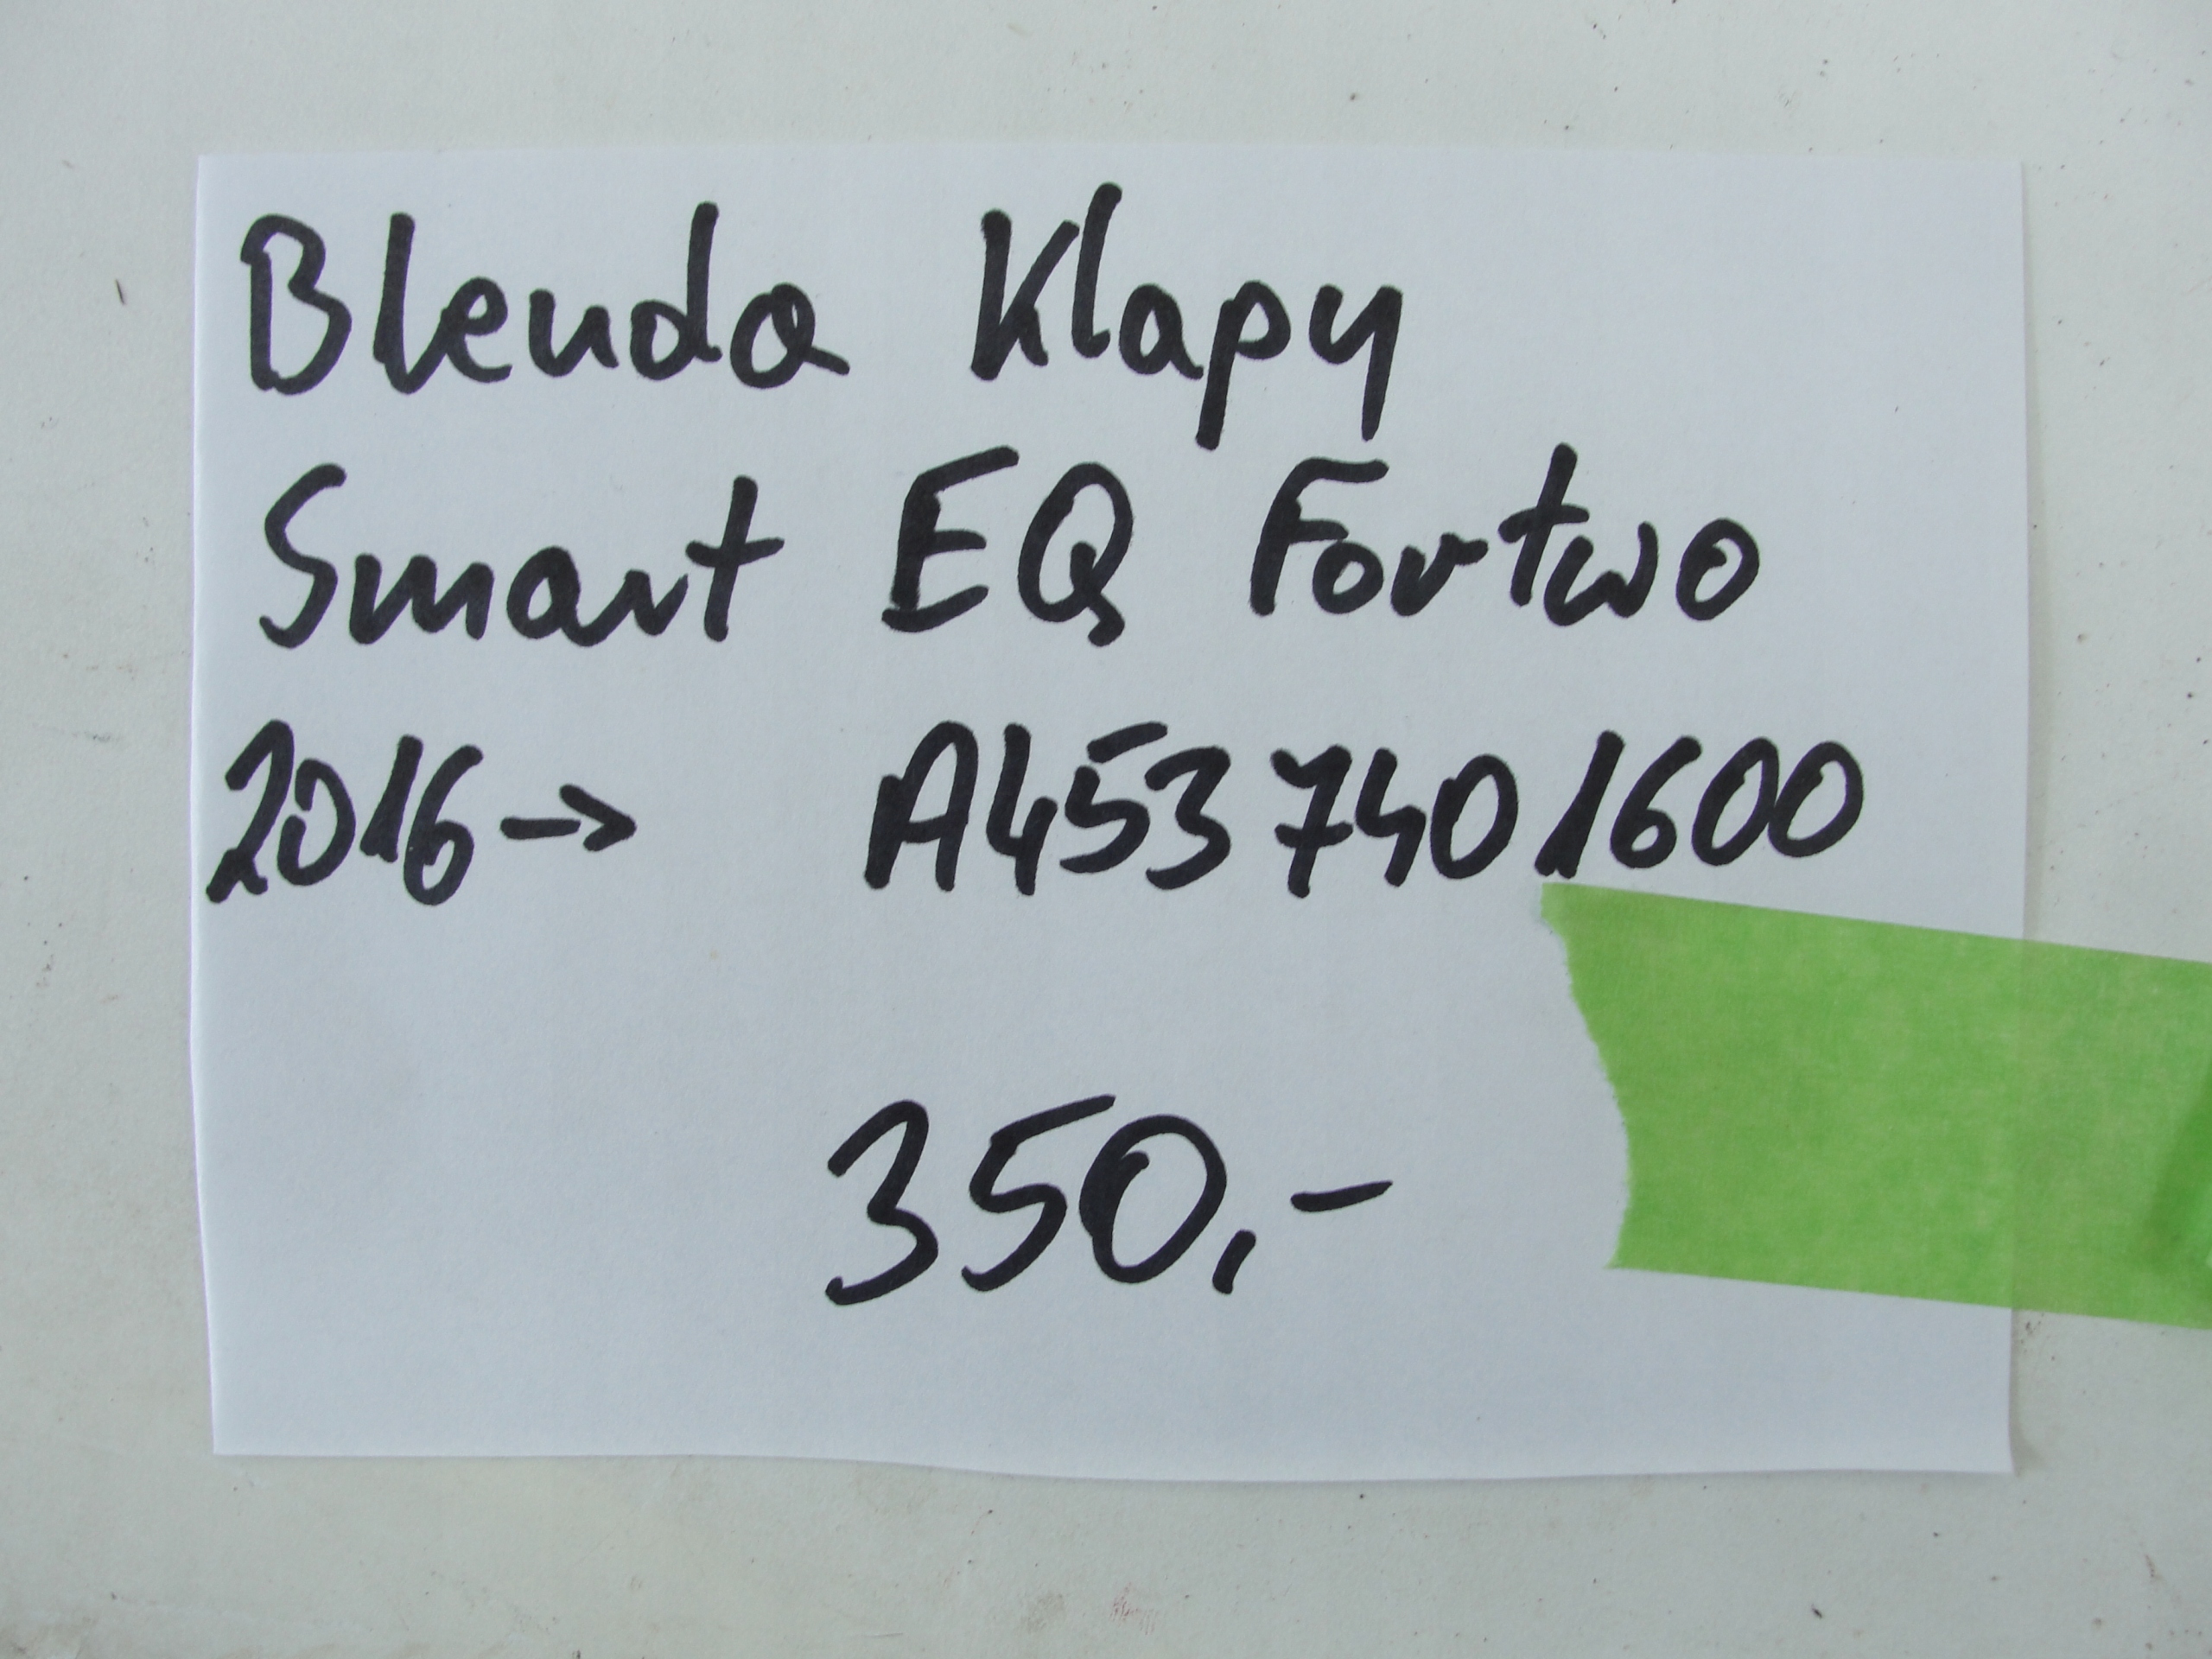 Blenda Klapy
Smart EQ Fortwo
2016→ A453 740 1600
350,-